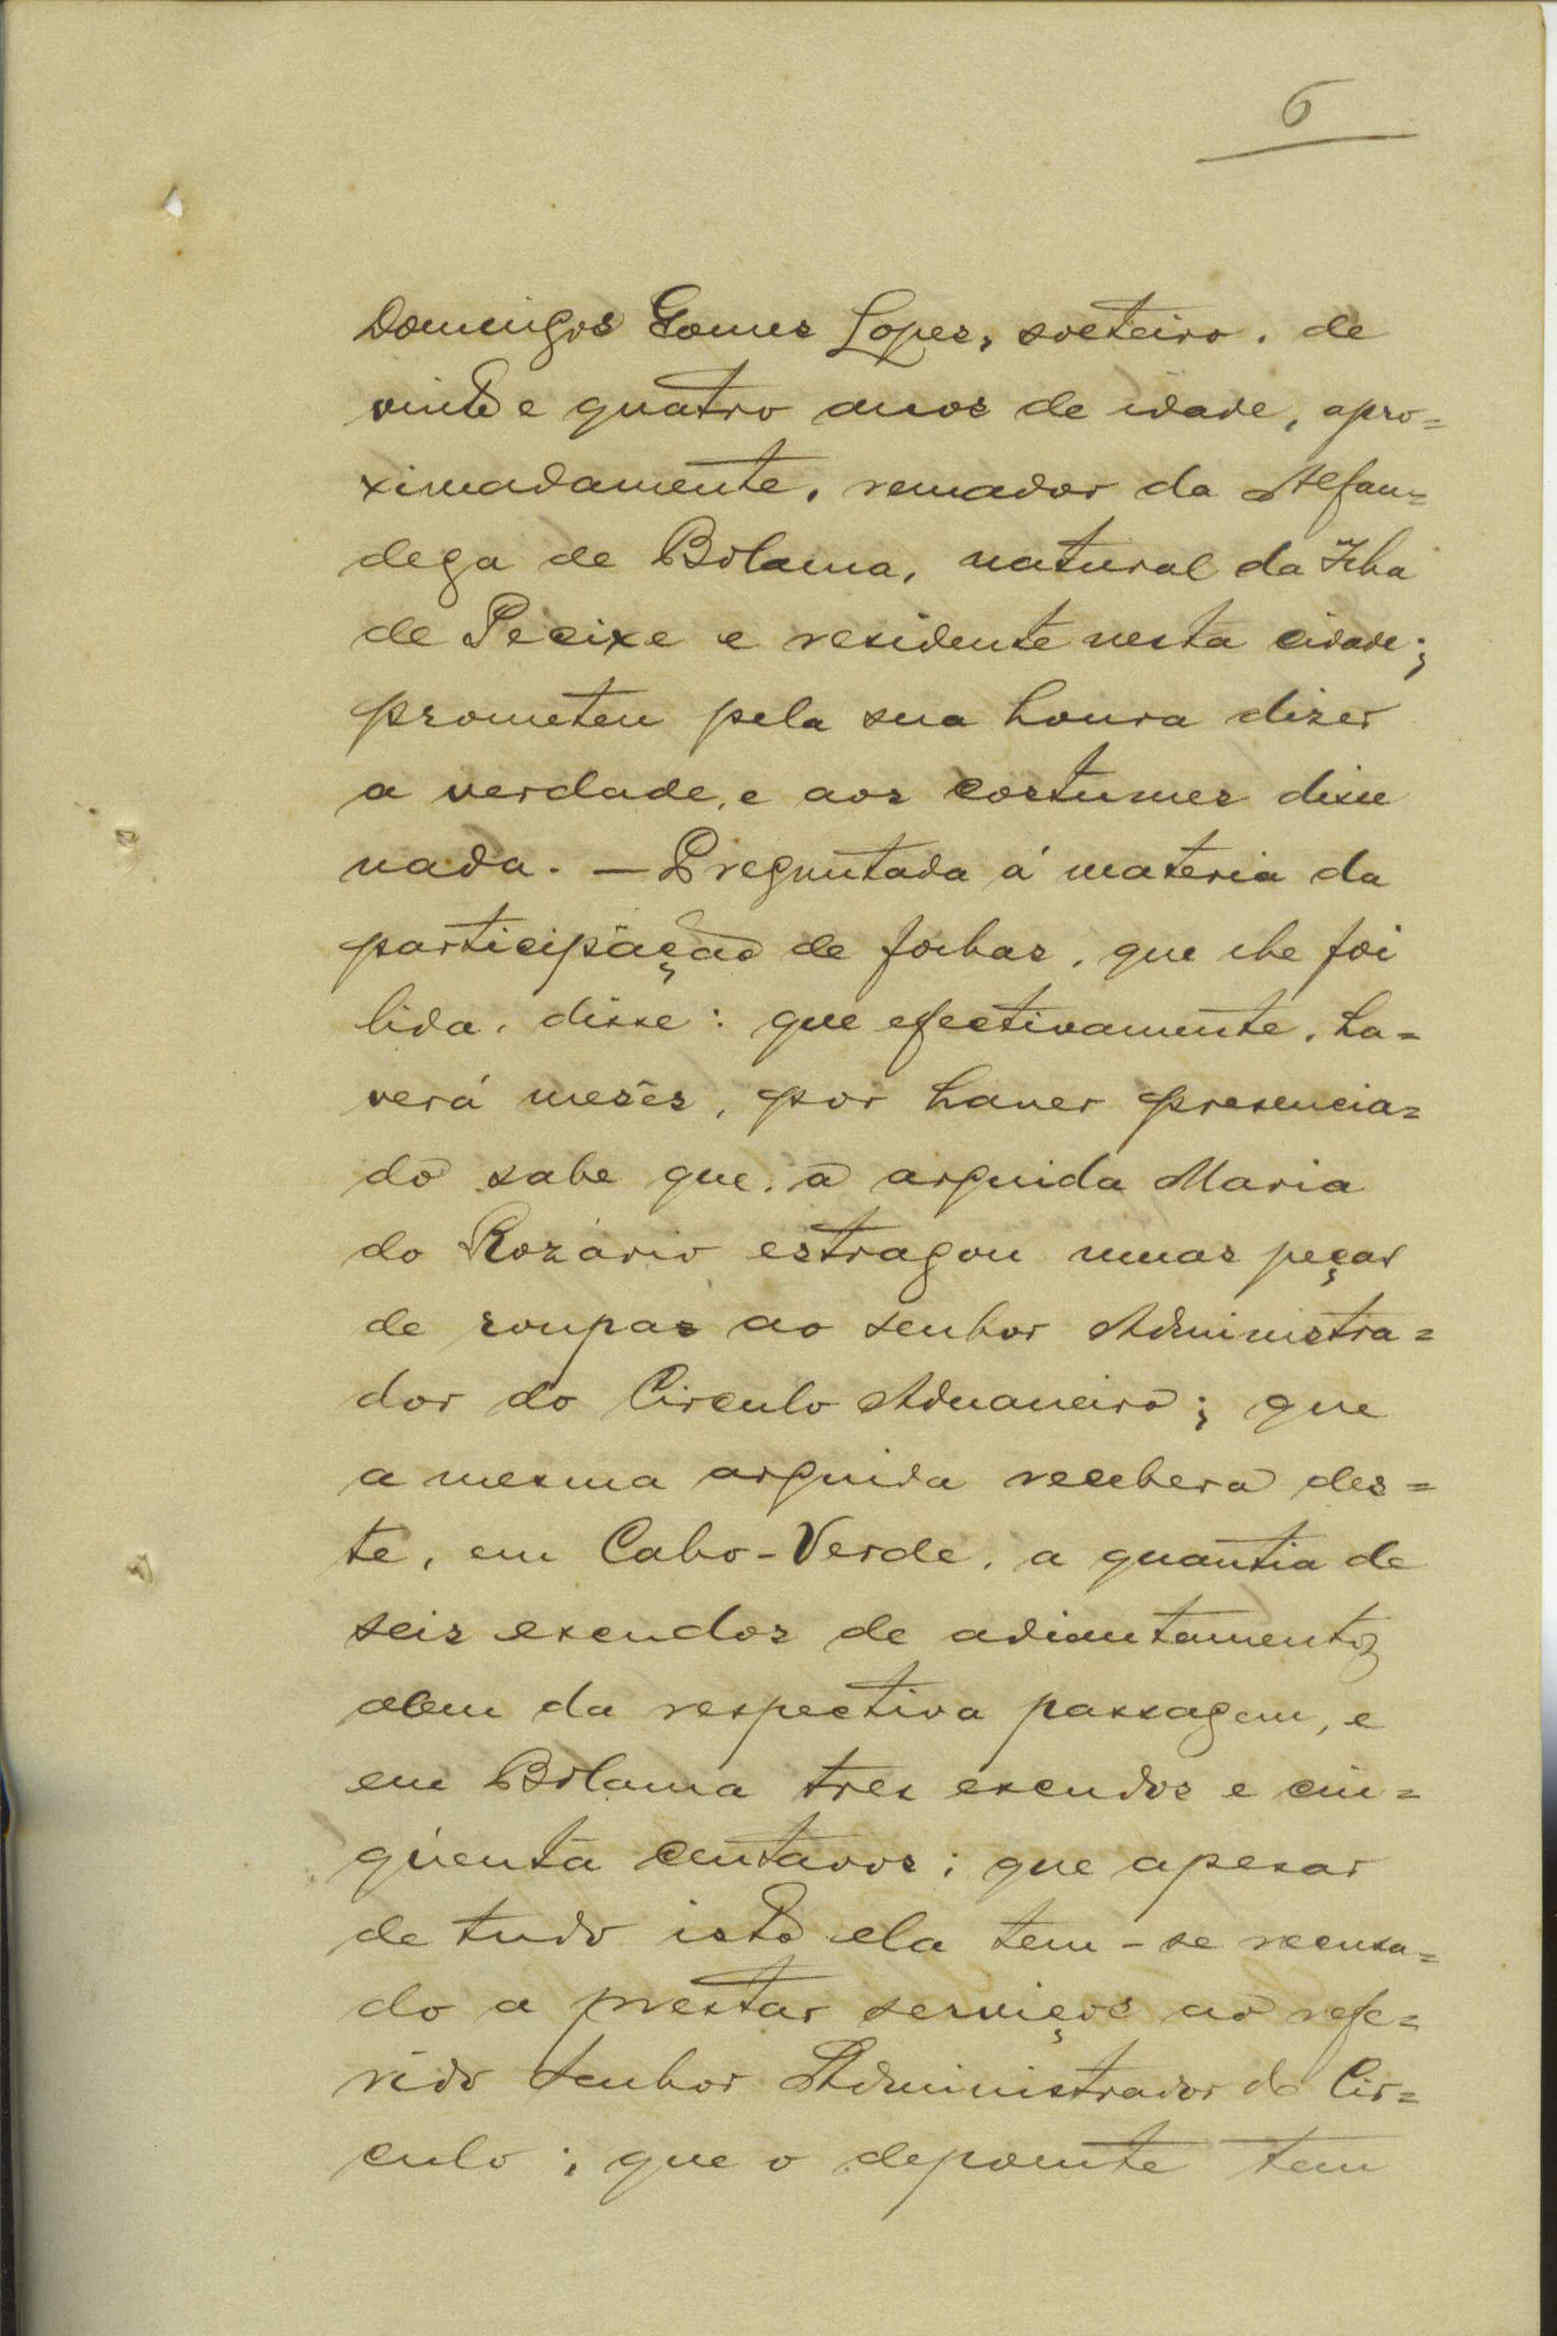 6
Domingos Gomes Lopes, solteiro, de
vinte e quatro anos de idade, apro=
ximadamente, remador da Alfan=
dega de Bolama, natural da Ilha
de Pecixe e residente nesta cidade;
prometeu pela sua honra dizer
a verdade, e aos costumes disse
nada. — Preguntada á materia da
participação de folhas, que lhe foi
lida, disse: que efectivamente, ha=
verá mesês, por haver presencia=
do sabe que, a arguida Maria
do Rozário estragou umas peças
de roupas ao senhor Administra=
dor do Circulo Aduaneiro; que
a mesma arguida recebera des=
te, em Cabo-Verde, a quantia de
seis escudos de adiantamento,
alem da respectiva passagem, e
em Bolama tres escudos e cin=
qüenta centavos; que apesar
de tudo isto ela tem-se recusa=
do a prestar serviços ao refe=
rido senhor Administrador do Cir=
culo; que o depoente tem